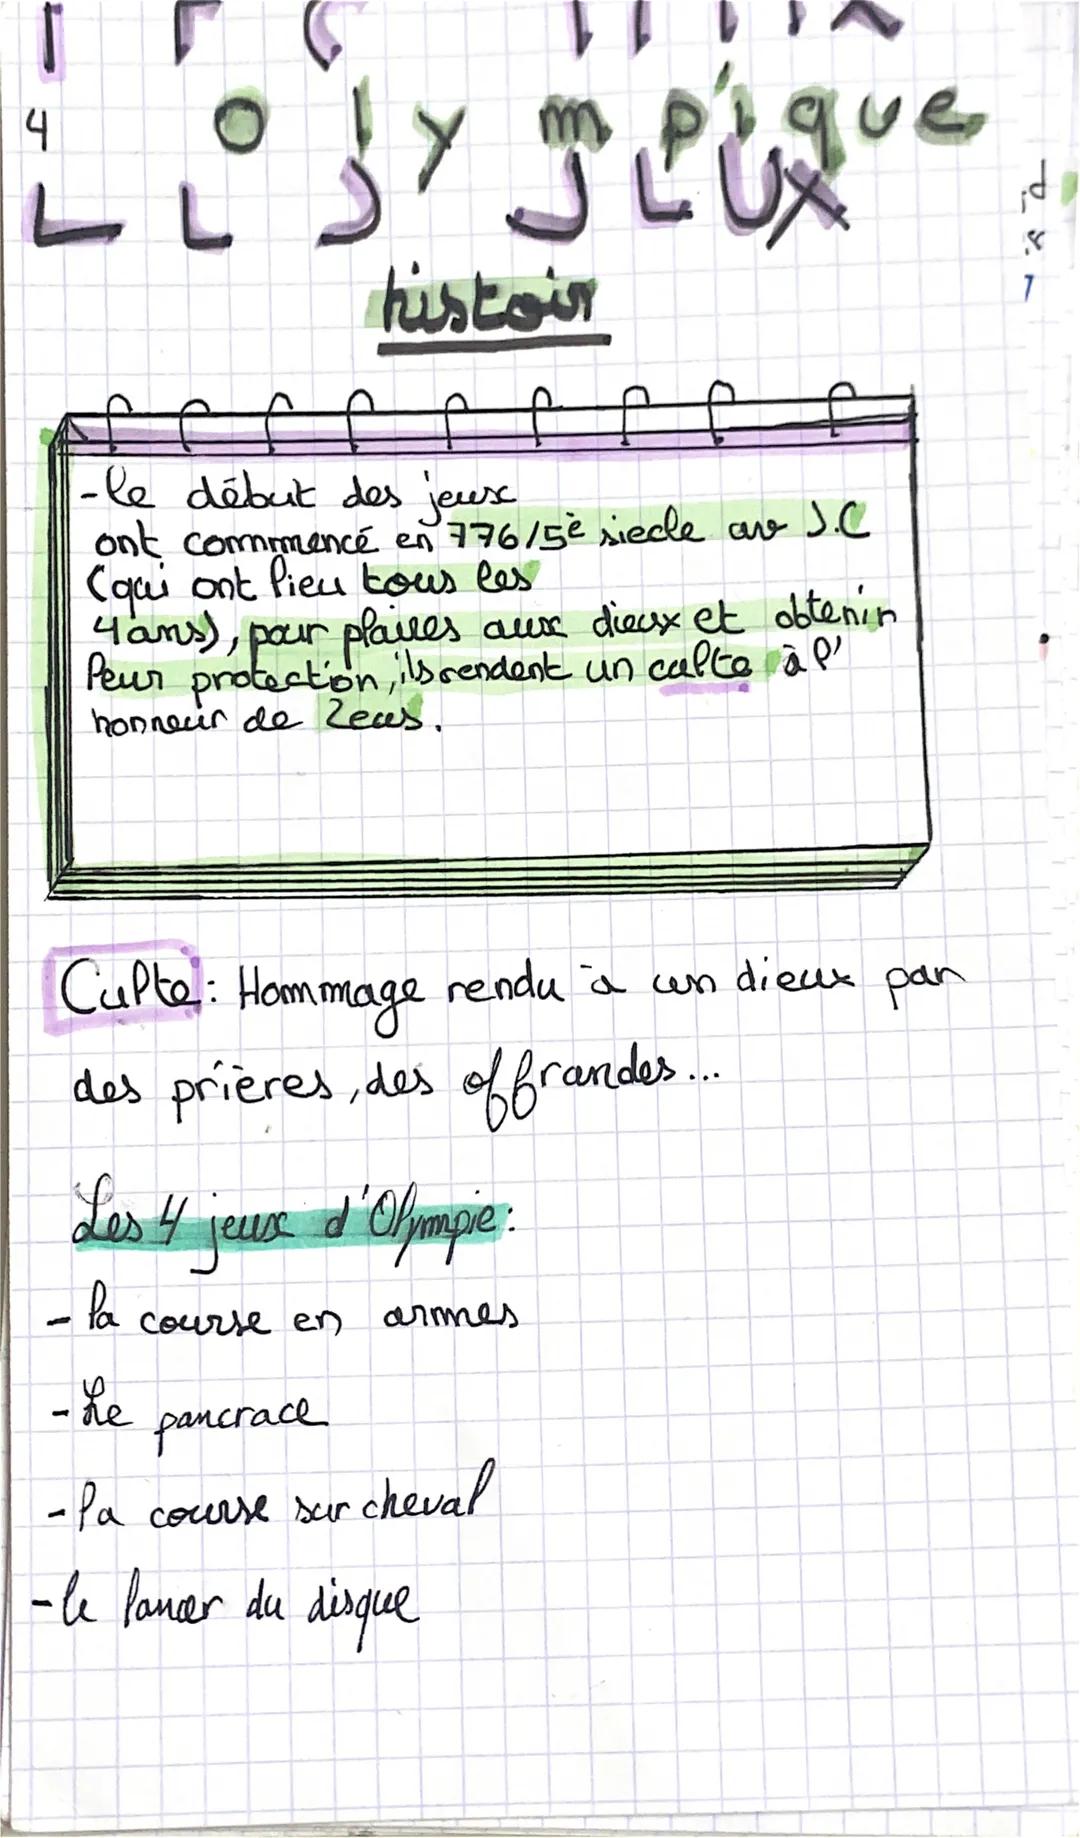 4
Olympique
LES JEUX
histoir
-le début des jeux
ont commmencé en 776/5è siecle av J.C
(qui ont lieu tous les
4ans), pour plaires aux dieux et obtenir
leur protection, ils rendent un culte à l'
honneur de Zeus.
Culte: Hommage rendu à un dieux par
des prières, des offrandes...
Les 4 jeux d'Olympie:
- la course en armes
- Le pancrace
- la course sur cheval
- le lancer du disque